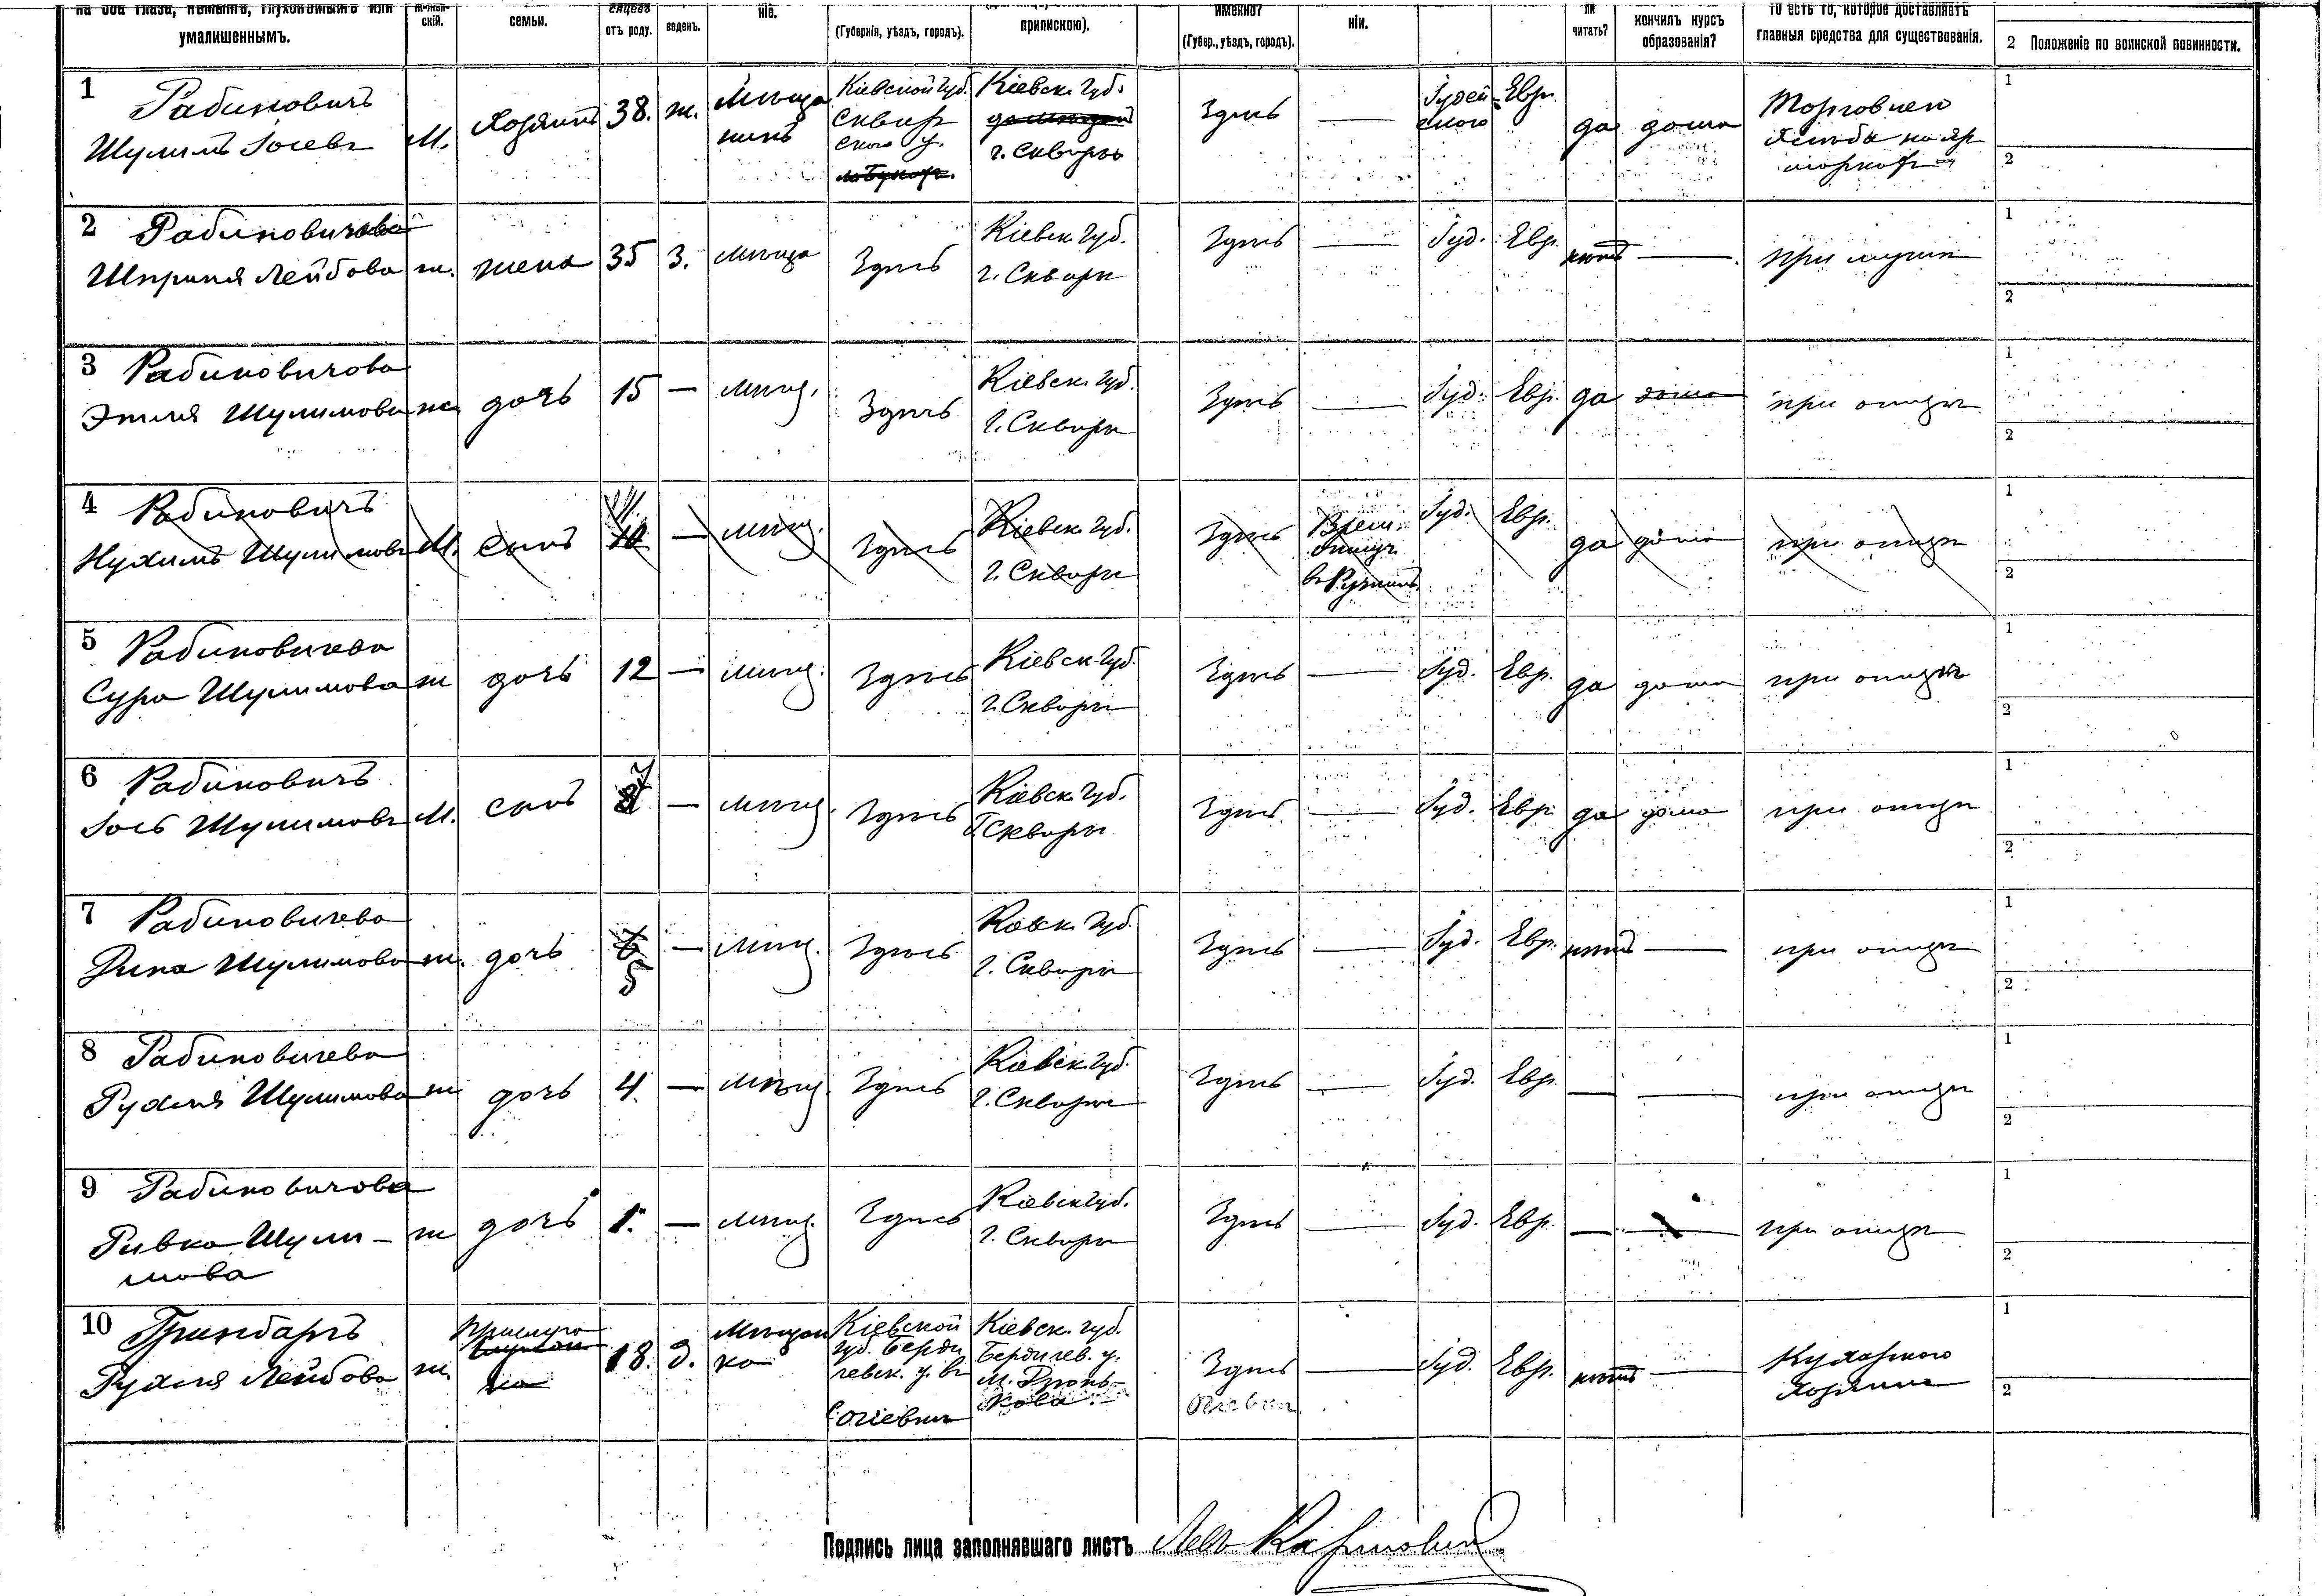 на оба глаза, нѣмымъ, глухонѣмымъ или умалишеннымъ.
скій.
семьи.
отъ роду.
веденъ.
ніе.
(Губернія, уѣздъ, городъ).
припискою).
именно?
(Губер., уѣздъ, городъ).
ніи.
ли читать?
кончилъ курсъ образованія?
то есть то, которое доставляетъ главныя средства для существованія.
2 Положеніе по воинской повинности.
1 Рабиновичъ
Шулимъ Іосевъ М. Хозяинъ 38. ж. Мѣща
нинъ
Кіевской губ.
Сквир
ского у.
Кіевск. губ.
г. Сквиры
Здѣсь — Іудей
ского Евр. да дома
Торговлей
хлѣба на яр
маркахъ
1
2
2 Рабиновичева
Шприня Лейбова ж. жена 35 З. мѣща Здѣсь Кіевск. губ.
г. Сквиры Здѣсь — Іуд. Евр. нѣтъ — при мужѣ
1
2
3 Рабиновичова
Этля Шулимова ж дочь 15 — мѣщ. Здѣсь Кіевск. губ.
г. Сквиры Здѣсь — Іуд. Евр. да дома при отцѣ
1
2
4 Рабиновичъ
Нухимъ Шулимовъ М. сынъ — мѣщ. Здѣсь Кіевск. губ.
г. Сквиры Здѣсь Врем.
отлуч.
въ Ружинѣ Іуд. Евр. да дома при отцѣ
1
2
5 Рабиновичева
Сура Шулимова ж дочь 12 — мѣщ. Здѣсь Кіевск. губ.
г. Сквиры Здѣсь — Іуд. Евр. да дома при отцѣ
1
2
6 Рабиновичъ
Іось Шулимовъ М. сынъ — мѣщ. Здѣсь Кіевск. губ.
г. Сквиры Здѣсь — Іуд. Евр. да дома при отцѣ
1
2
7 Рабиновичева
Дина Шулимова ж. дочь 6
5 — мѣщ. Здѣсь Кіевск. губ.
г. Сквиры Здѣсь — Іуд. Евр. нѣтъ — при отцѣ
1
2
8 Рабиновичева
Рухля Шулимова ж дочь 4. — мѣщ. Здѣсь Кіевск. губ.
г. Сквиры Здѣсь — Іуд. Евр. — — при отцѣ
1
2
9 Рабиновичова
Ривка Шули-
мова ж дочь 1. — мѣщ. Здѣсь Кіевск. губ.
г. Сквиры Здѣсь — Іуд. Евр. — — при отцѣ
1
2
10 Гринбаръ
Рухля Лейбова ж. 18. д. Мѣщан
ка
Кіевской
губ. Берди
чевск. у. въ
Кіевск. губ.
Бердичев. у.
м. Дзюнь-
кова
Здѣсь — Іуд. Евр. нѣтъ —
1
2
Подпись лица заполнявшаго листъ